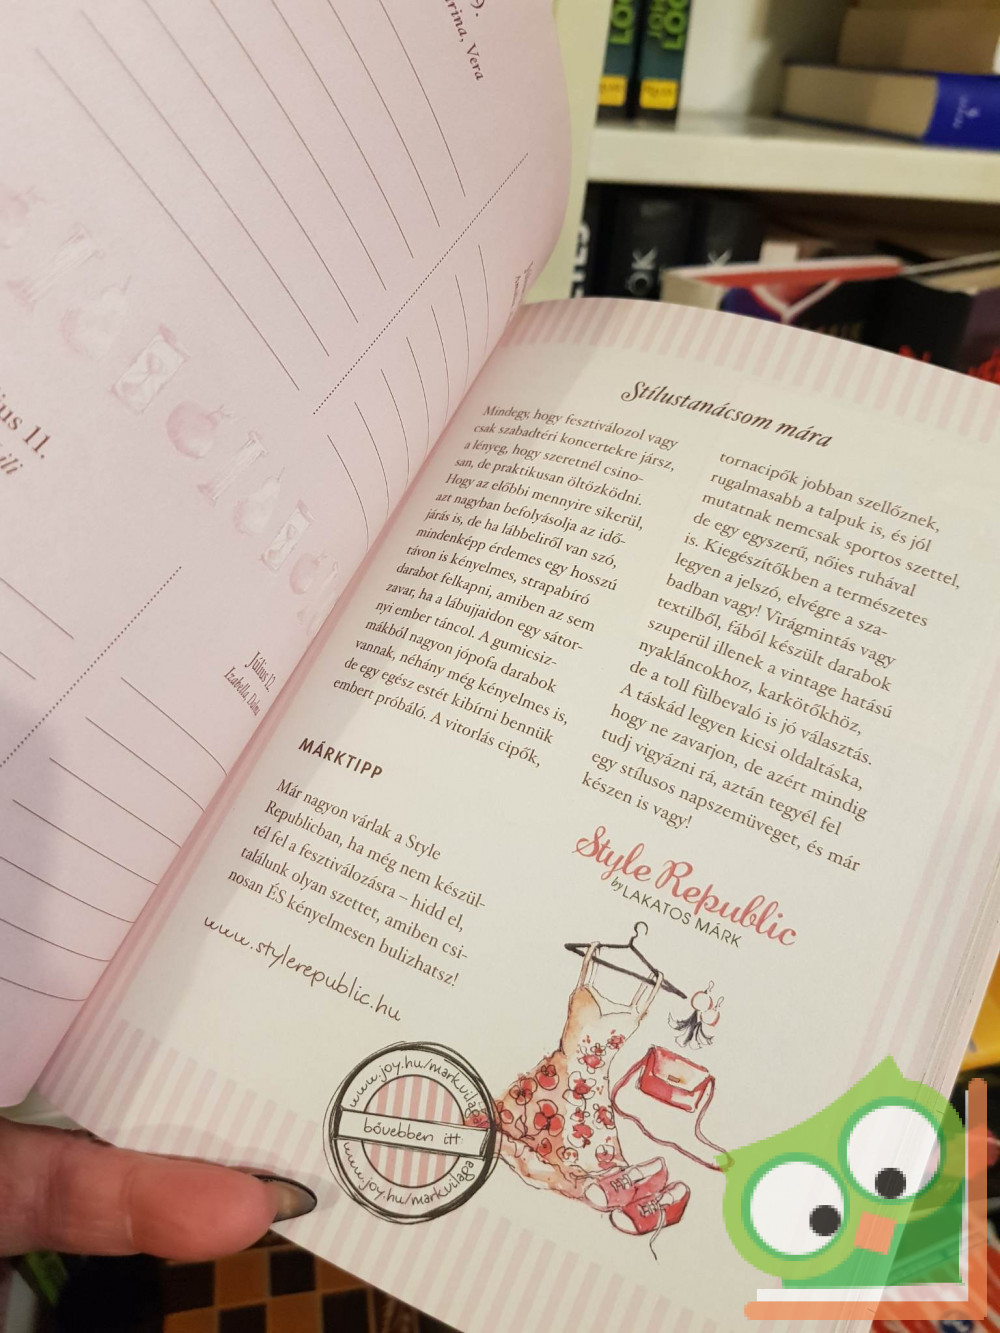 9.
rina, Vera
ius 11.
ili
Július 12.
Izabella, Dalma
Stílustanácsom mára
Mindegy, hogy fesztiválozol vagy
csak szabadtéri koncertekre jársz,
a lényeg, hogy szeretnél csino-
san, de praktikusan öltözködni.
Hogy az előbbi mennyire sikerül,
azt nagyban befolyásolja az idő-
járás is, de ha lábbeliről van szó,
mindenképp érdemes egy hosszú
távon is kényelmes, strapabíró
darabot felkapni, amiben az sem
zavar, ha a lábujjaidon egy sátor-
nyi ember táncol. A gumicsiz-
mákból nagyon jópofa darabok
vannak, néhány még kényelmes is,
de egy egész estét kibírni bennük
embert próbáló. A vitorlás cipők,
tornacipők jobban szellőznek,
rugalmasabb a talpuk is, és jól
mutatnak nemcsak sportos szettel,
de egy egyszerű, nőies ruhával
is. Kiegészítőkben a természetes
legyen a jelszó, elvégre a sza-
badban vagy! Virágmintás vagy
textilből, fából készült darabok
szuperül illenek a vintage hatású
nyakláncokhoz, karkötőkhöz,
de a toll fülbevaló is jó választás.
A táskád legyen kicsi oldaltáska,
hogy ne zavarjon, de azért mindig
tudj vigyázni rá, aztán tegyél fel
egy stílusos napszemüveget, és már
készen is vagy!
MÁRKTIPP
Már nagyon várlak a Style
Republicban, ha még nem készül-
tél fel a fesztiválozásra – hidd el,
találunk olyan szettet, amiben csi-
nosan ÉS kényelmesen bulizhatsz!
www.stylerepublic.hu
Style Republic
by LAKATOS MÁRK
www.joy.hu/markvilaga
bővebben itt:
www.joy.hu/markvilaga